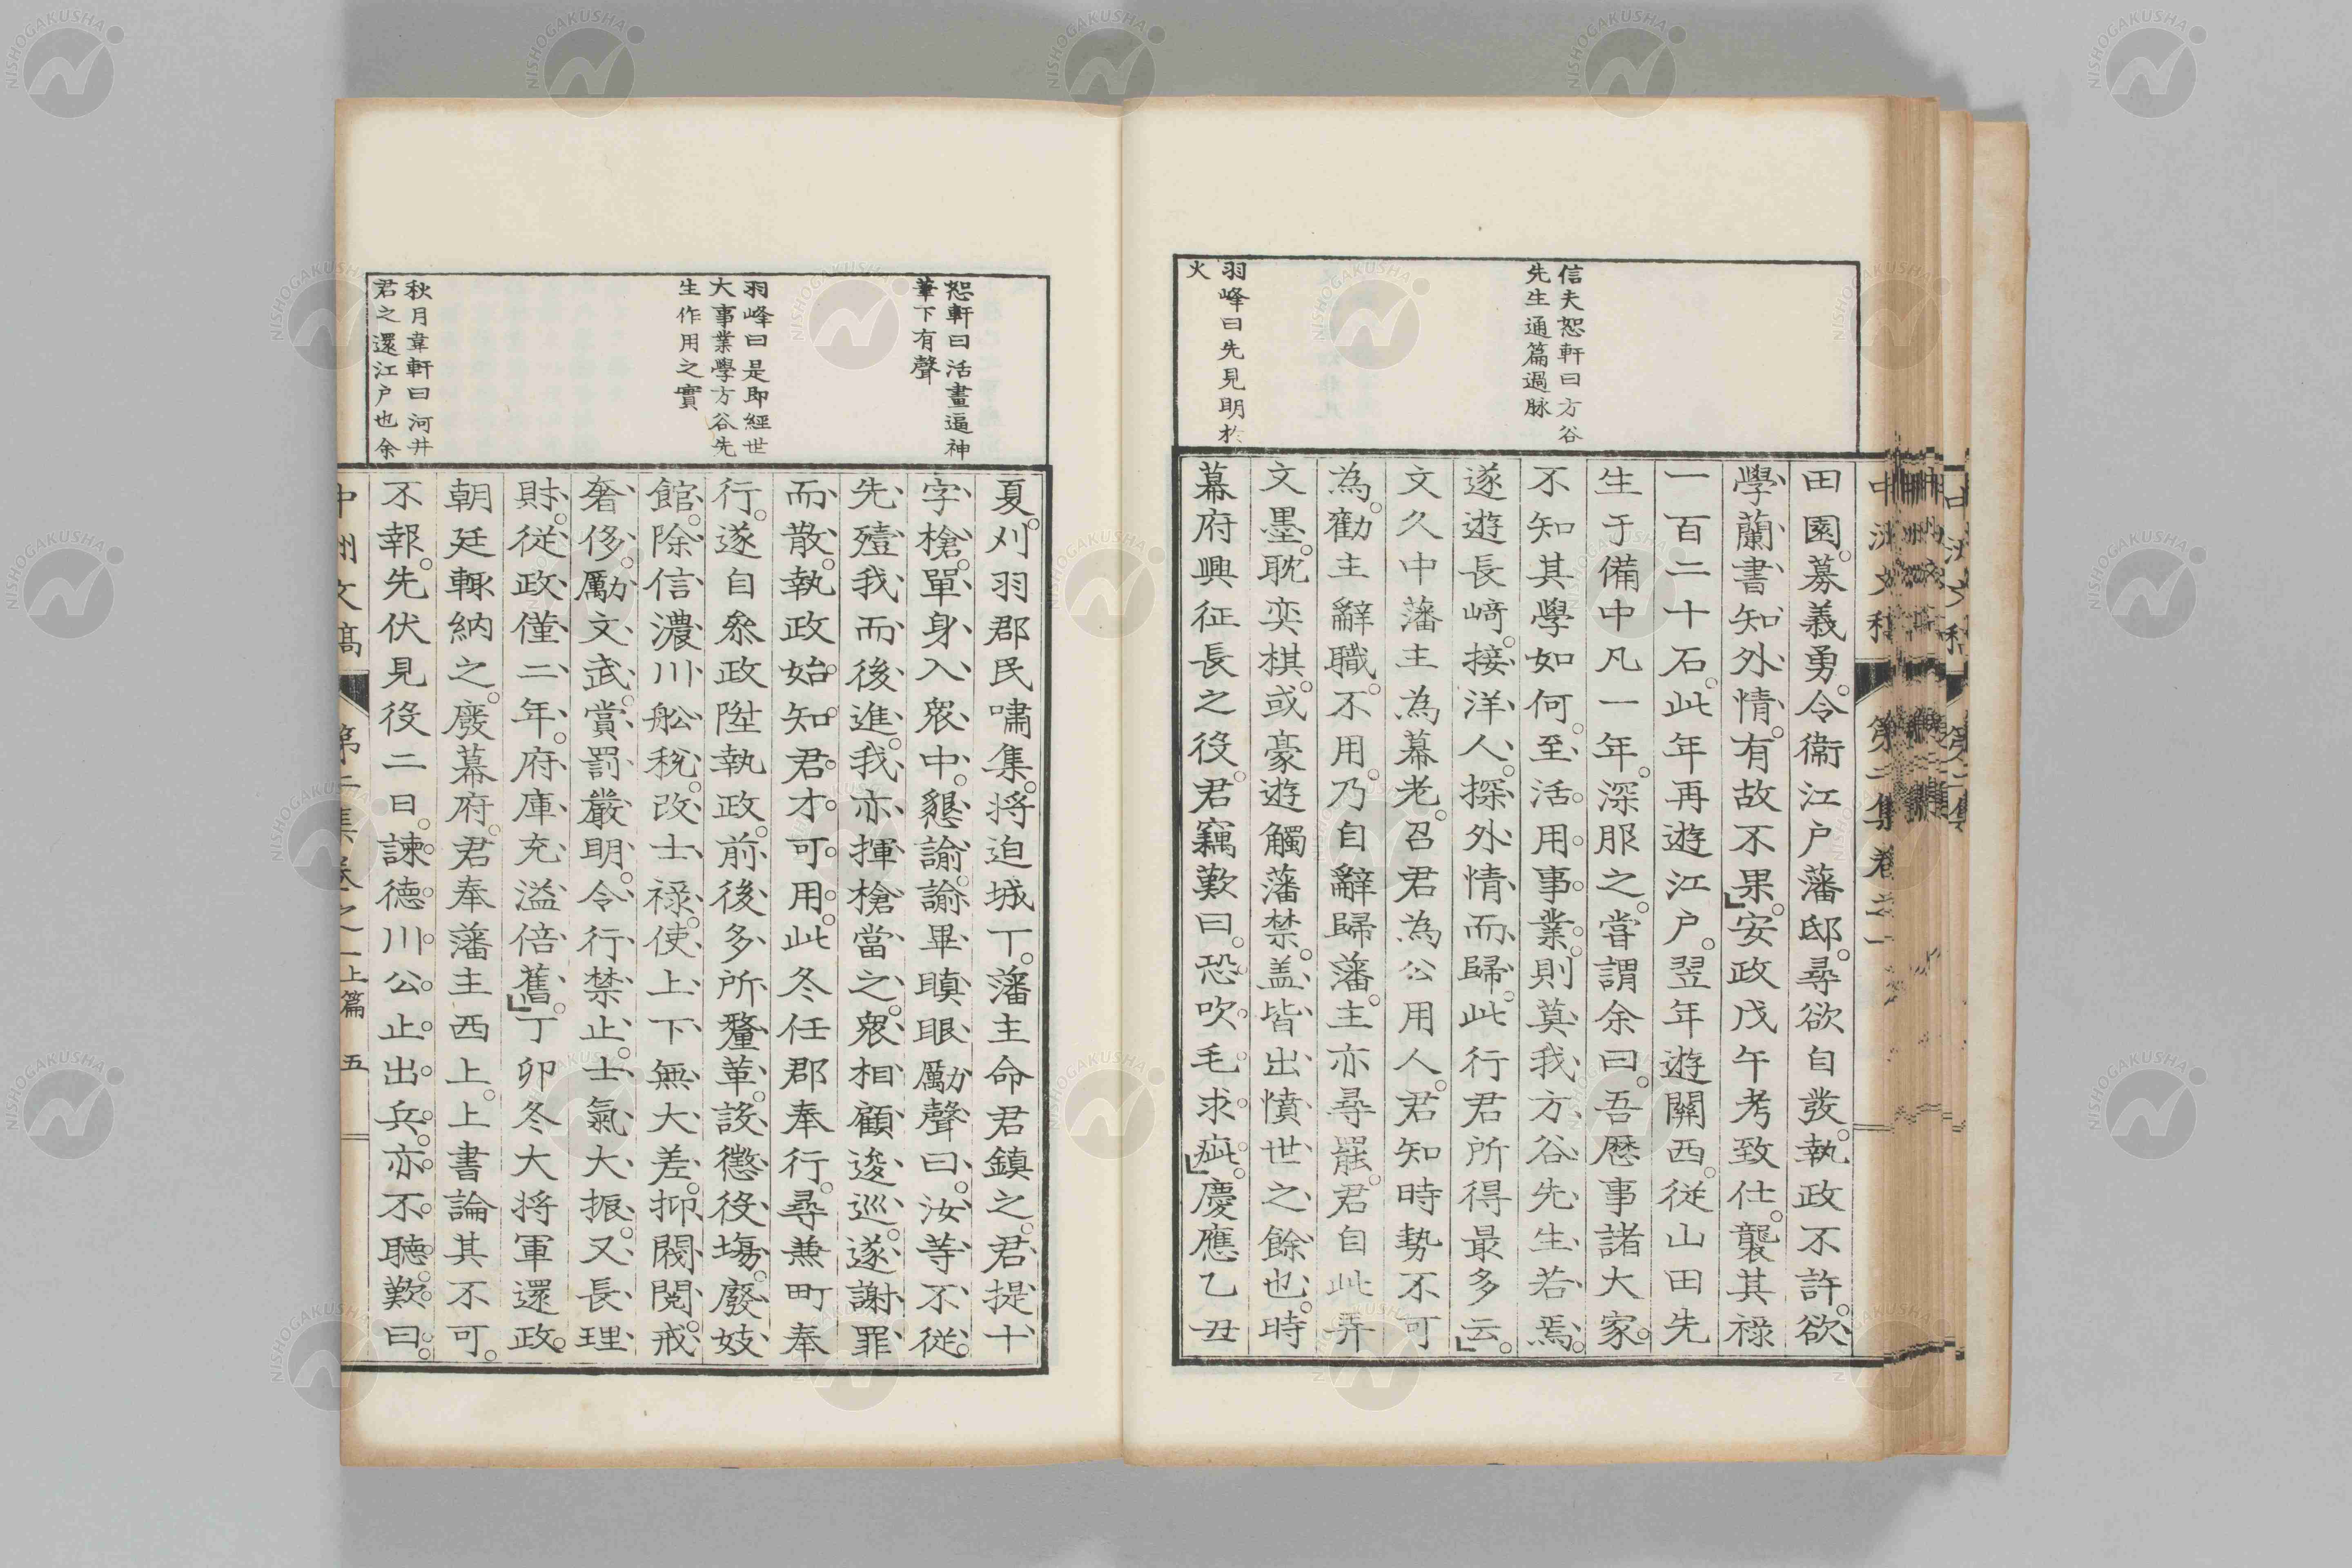 信夫恕軒曰方谷
先生通篇過脉
羽峰曰先見明於
火
田園。募義勇。令衞江戸藩邸。尋欲自發。執政不許。欲
學蘭書知外情。有故不果。安政戊午考致仕。襲其祿
一百二十石。此年再遊江戸。翌年遊關西。從山田先
生于備中凡一年。深服之。嘗謂余曰。吾歷事諸大家。
不知其學如何。至活用事業。則莫我方谷先生若焉。
遂遊長崎。接洋人。探外情而歸。此行君所得最多云。
文久中藩主為幕老。召君為公用人。君知時勢不可
為。勸主辭職。不用。乃自辭歸藩。主亦尋罷。君自此弄
文墨。耽奕棋。或豪遊觸藩禁。盖皆出憤世之餘也。時
幕府興征長之役。君竊歎曰。恐吹毛求疵。慶應乙丑
恕軒曰活畫逼神
筆下有聲
羽峰曰是即經世
大事業學方谷先
生作用之實
秋月韋軒曰河井
君之還江戸也余
夏。刈羽郡民嘯集。將迫城下。藩主命君鎮之。君提十
字槍。單身入衆中。懇諭。諭畢瞋眼勵聲曰。汝等不從。
先殪我而後進。我亦揮槍當之。衆相顧逡巡。遂謝罪
而散。執政始知君才可用。此冬任郡奉行。尋兼町奉
行。遂自叅政陞執政。前後多所釐革。設懲役塲。廢妓
館。除信濃川舩稅。改士祿。使上下無大差。抑閥閱。戒
奢侈。勵文武。賞罰嚴明。令行禁止。士氣大振。又長理
財。從政僅二年。府庫充溢倍舊。丁卯冬大將軍還政。
朝廷輙納之。廢幕府。君奉藩主西上。上書論其不可。
不報。先伏見役二日。諫德川公止出兵。亦不聽。歎曰。
中洲文稿 第二集卷之一上篇 五